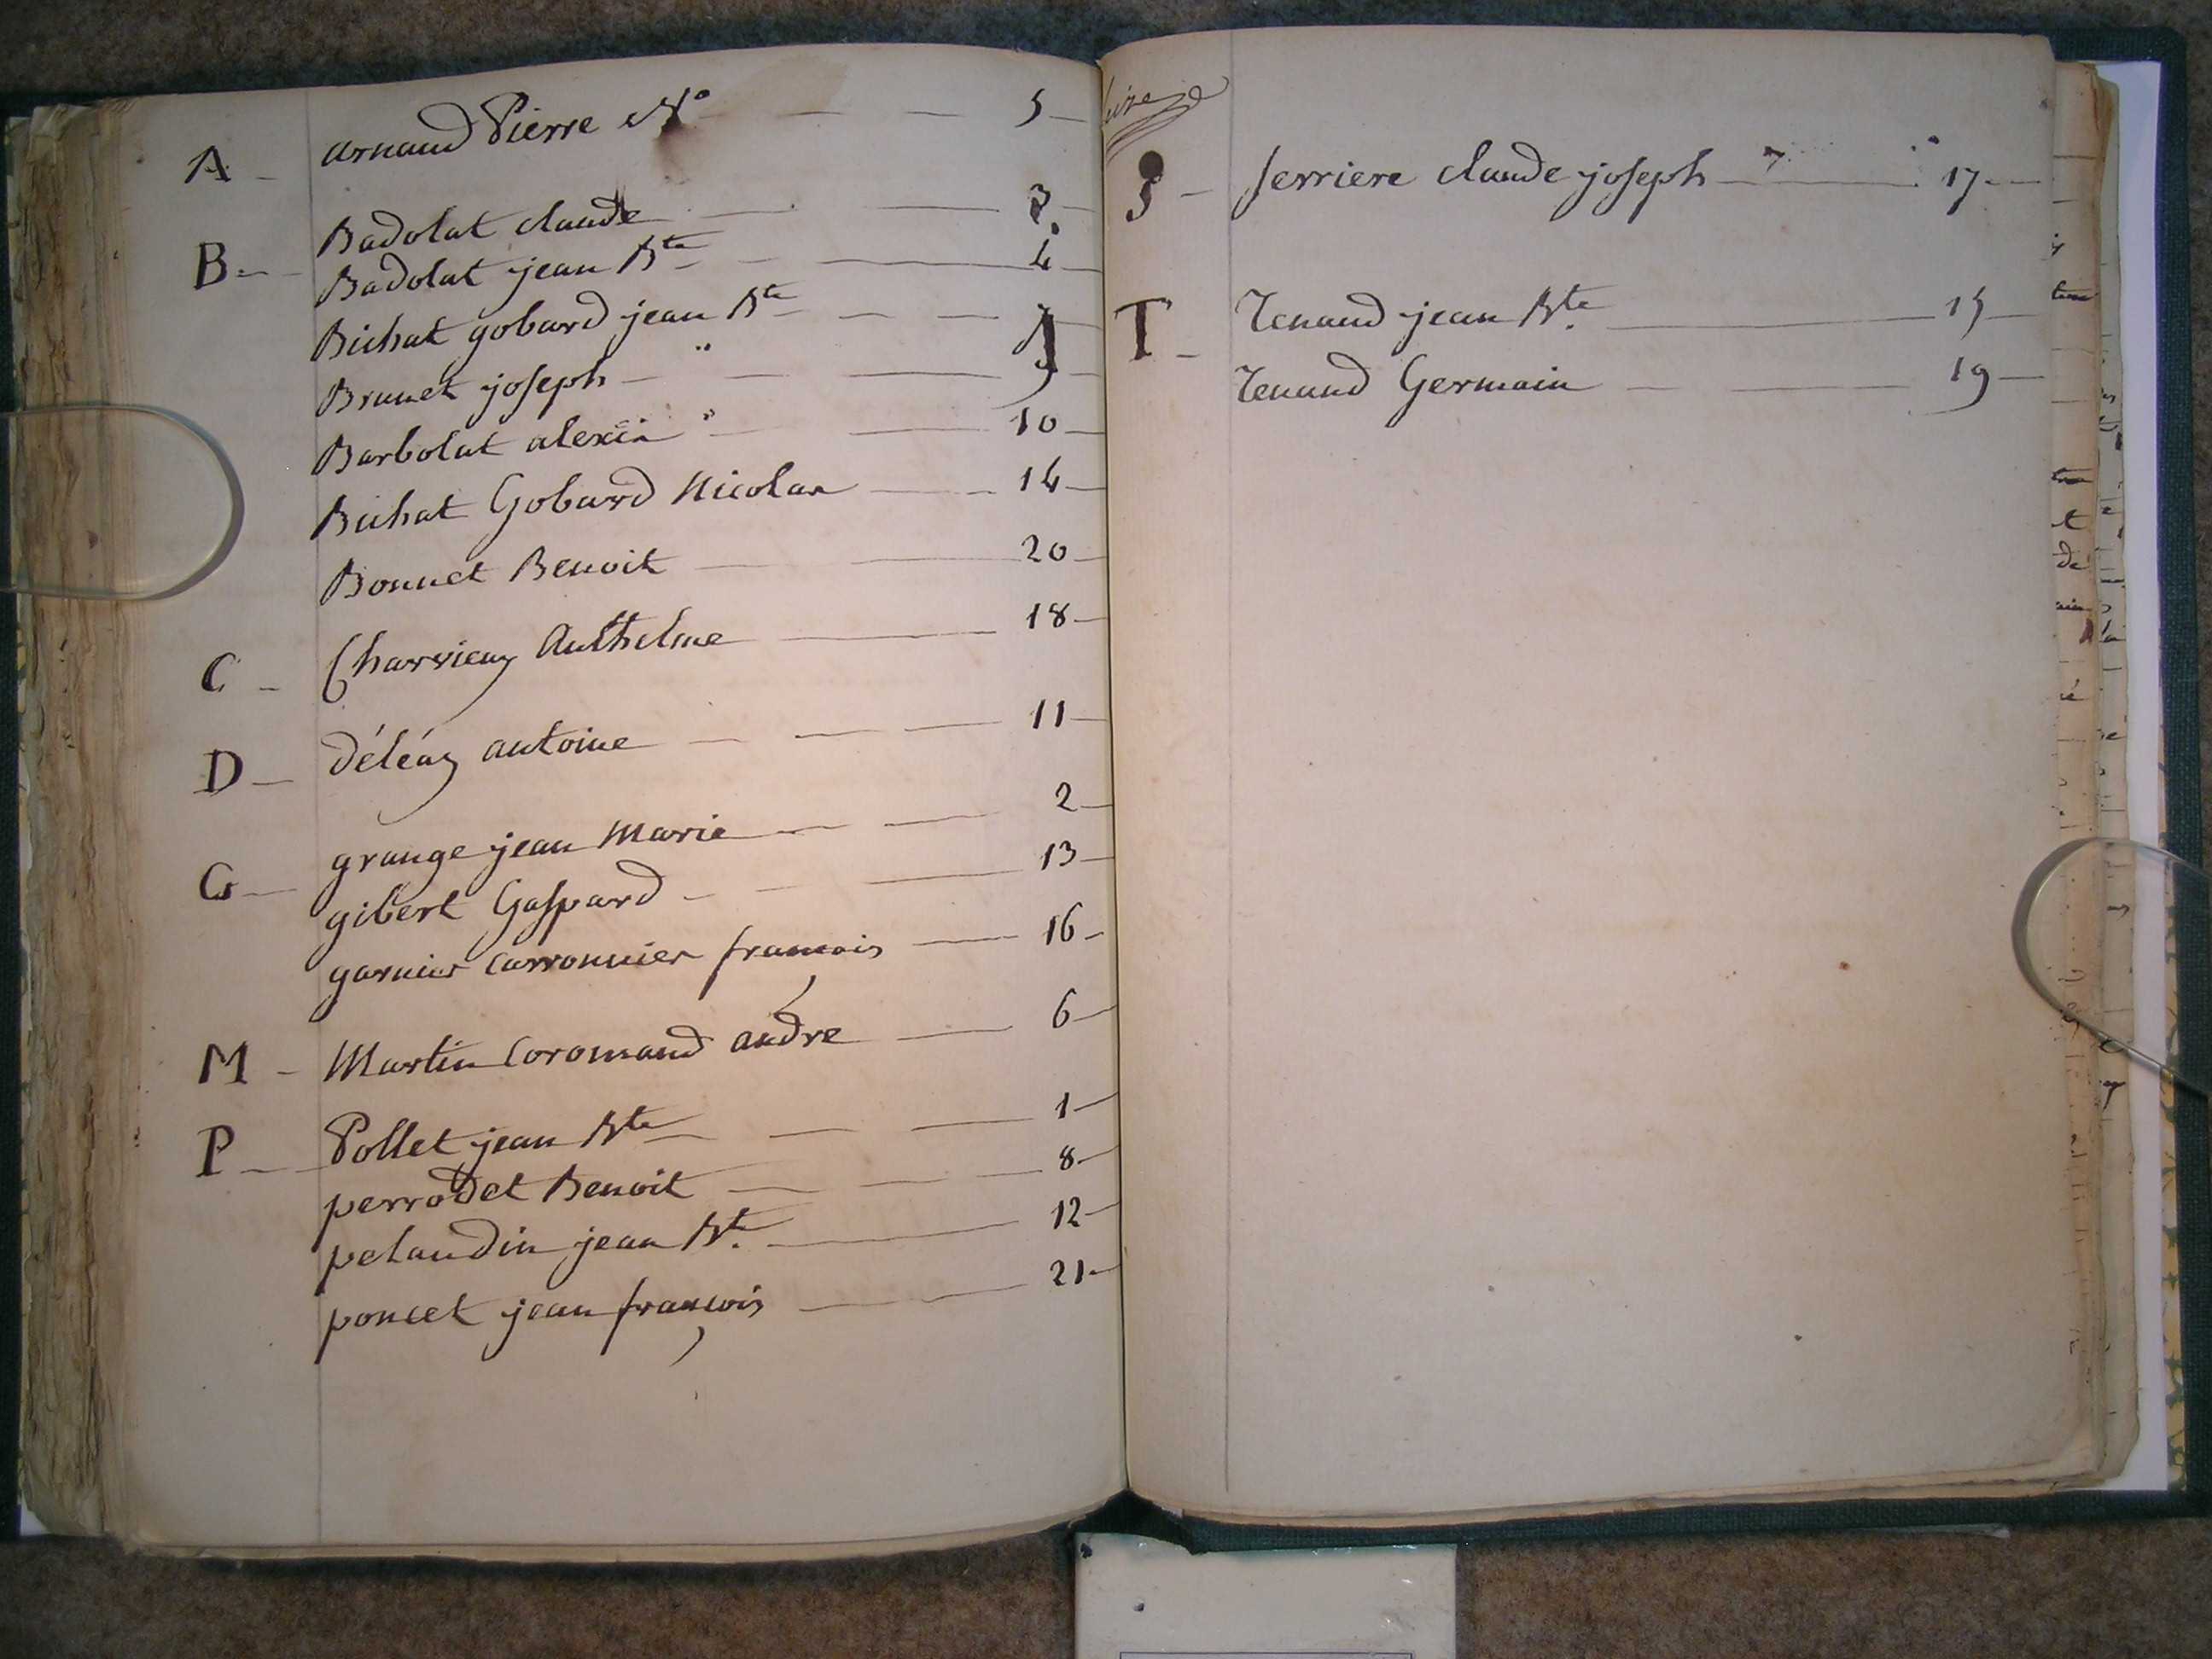 A - arnaud Pierre N° - - 5 -
B - Badolat claude - - 3 -
Badolat jean Bte - - 4 -
Bichat gobard jean Bte - - - 7 -
Brunet joseph - " - - 9 -
Barbolat alexis " - - 10 -
Bichat Gobard Nicolas - - 14 -
Bonnet Benoit - - 20 -
C - Charvieuz Anthelme - - 18 -
D - déléaz antoine - - - 11 -
G - grange jean Marie - - 2 -
gibert Gaspard - - - 13 -
garnier carronnier francois - 16 -
M - Martin Coromand andre - 6 -
P - Pollet jean Bte - - - 1 -
perrodet Benoit - - - 8 -
pelaudin jean Bt. - - 12 -
poncet jean françois - - 21 -
S - serriere claude joseph - - 17 -
T - Tenand jean Bte - 15 -
Tenand Germain - - 19 -